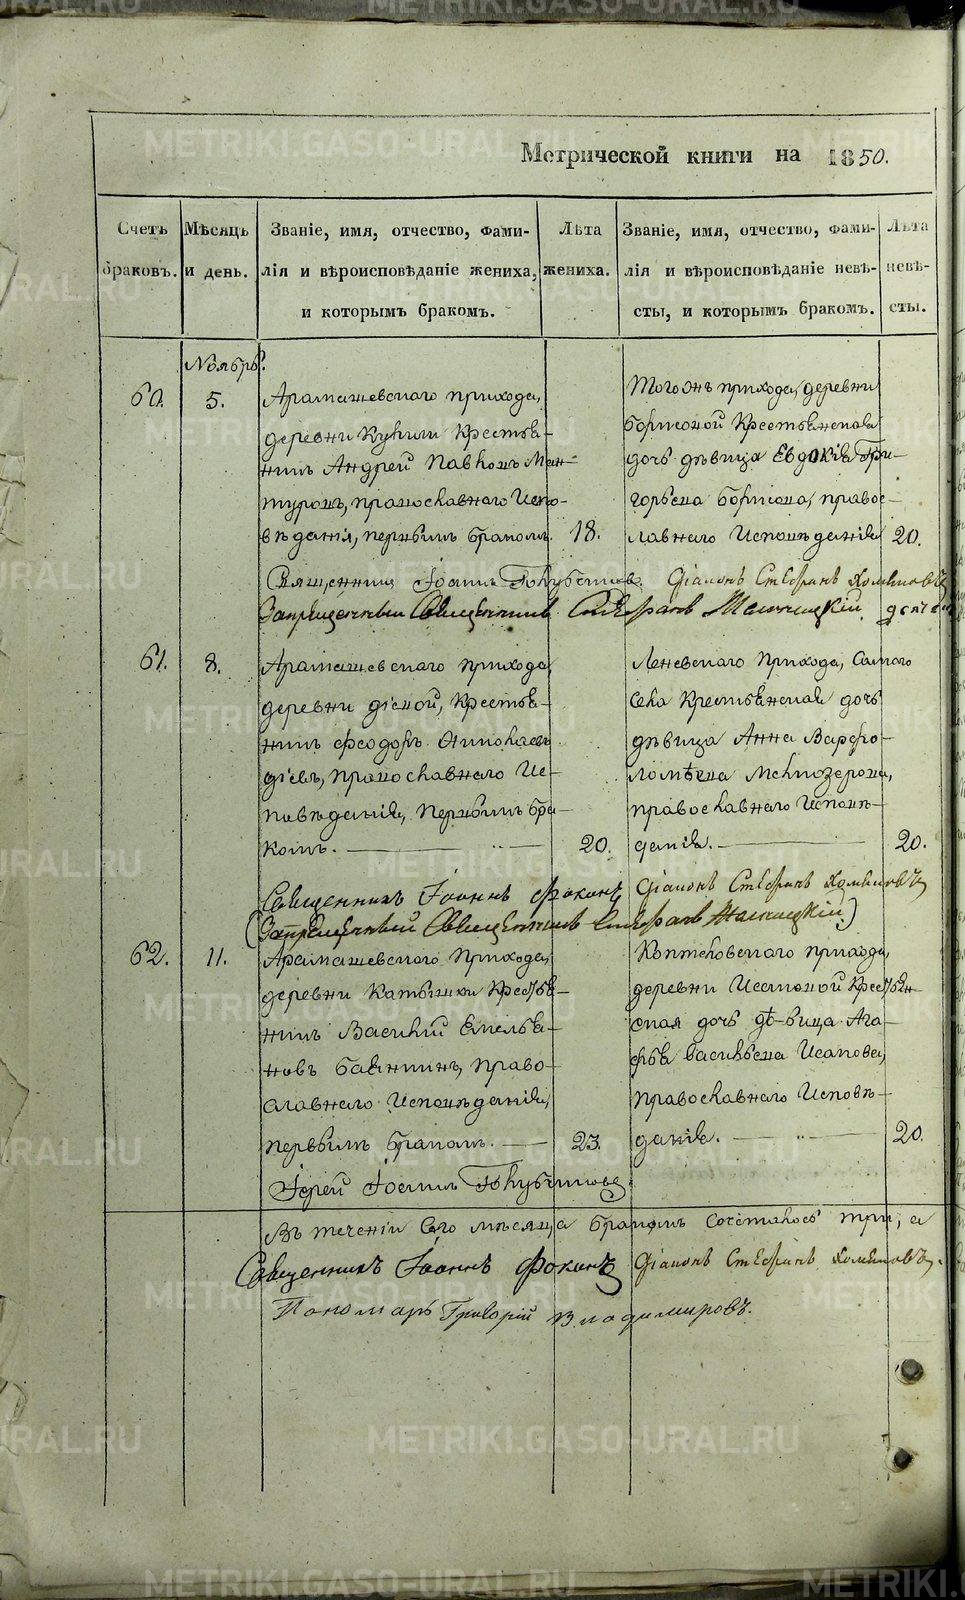 Метрической книги на 1850.
Счетъ браковъ.
Мѣсяцъ и день.
Званіе, имя, отчество, фами-
лія и вѣроисповѣданіе жениха,
и которымъ бракомъ.
Лѣта жениха.
Званіе, имя, отчество, фами-
лія и вѣроисповѣданіе невѣ-
сты, и которымъ бракомъ.
Лѣта невѣ-
сты.
Ноябрь.
60.
5.
Арамашевскаго прихода,
деревни Кулики Крестья-
нинъ Андрей Павловъ Ман-
туровъ, православнаго Испо-
вѣданія, первымъ бракомъ.
18.
Того жъ прихода, деревни
Крестьянская
дочь дѣвица Евдокія Гри-
горьева
правос-
лавнаго Исповѣданія
20.
Священникъ Іоаннъ
Діаконъ Стефанъ Хомяковъ
Запрещенный Священникъ Стефанъ
61.
8.
Арамашевскаго прихода,
деревни
Крестья-
нинъ Феодоръ
православнаго Ис-
повѣданія, Первымъ бра-
комъ.
20.
Леневскаго прихода, Самого
Села Крестьянская дочь
дѣвица Анна Варфо-
ломѣева
православнаго Исповѣ-
данія.
20.
Священникъ Іоаннъ
Діаконъ Стефанъ Хомяковъ
(Запрещенный Священникъ Стефанъ
62.
11.
Арамашевскаго Прихода,
деревни Катышки Крестья-
нинъ Василий Емелья-
новъ
Право-
славнаго Исповѣданія,
первымъ бракомъ.
23.
Коптеловскаго прихода,
деревни Исаковой Крестьян-
ская дочь дѣвица Ага-
фья Васильева Исакова,
Православнаго Исповѣ-
данія.
20.
Іерей Іоаннъ
Въ теченіи Сего мѣсяца браковъ Сочеталось три, а
Священникъ Іоаннъ
Діаконъ Стефанъ Хомяковъ.
Пономарь Григорій Владимировъ.
METRIKI.GASO-URAL.RU